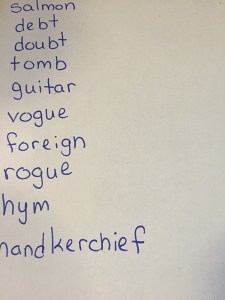 salmon
debt
doubt
tomb
guitar
vogue
foreign
rogue
hym
handkerchief